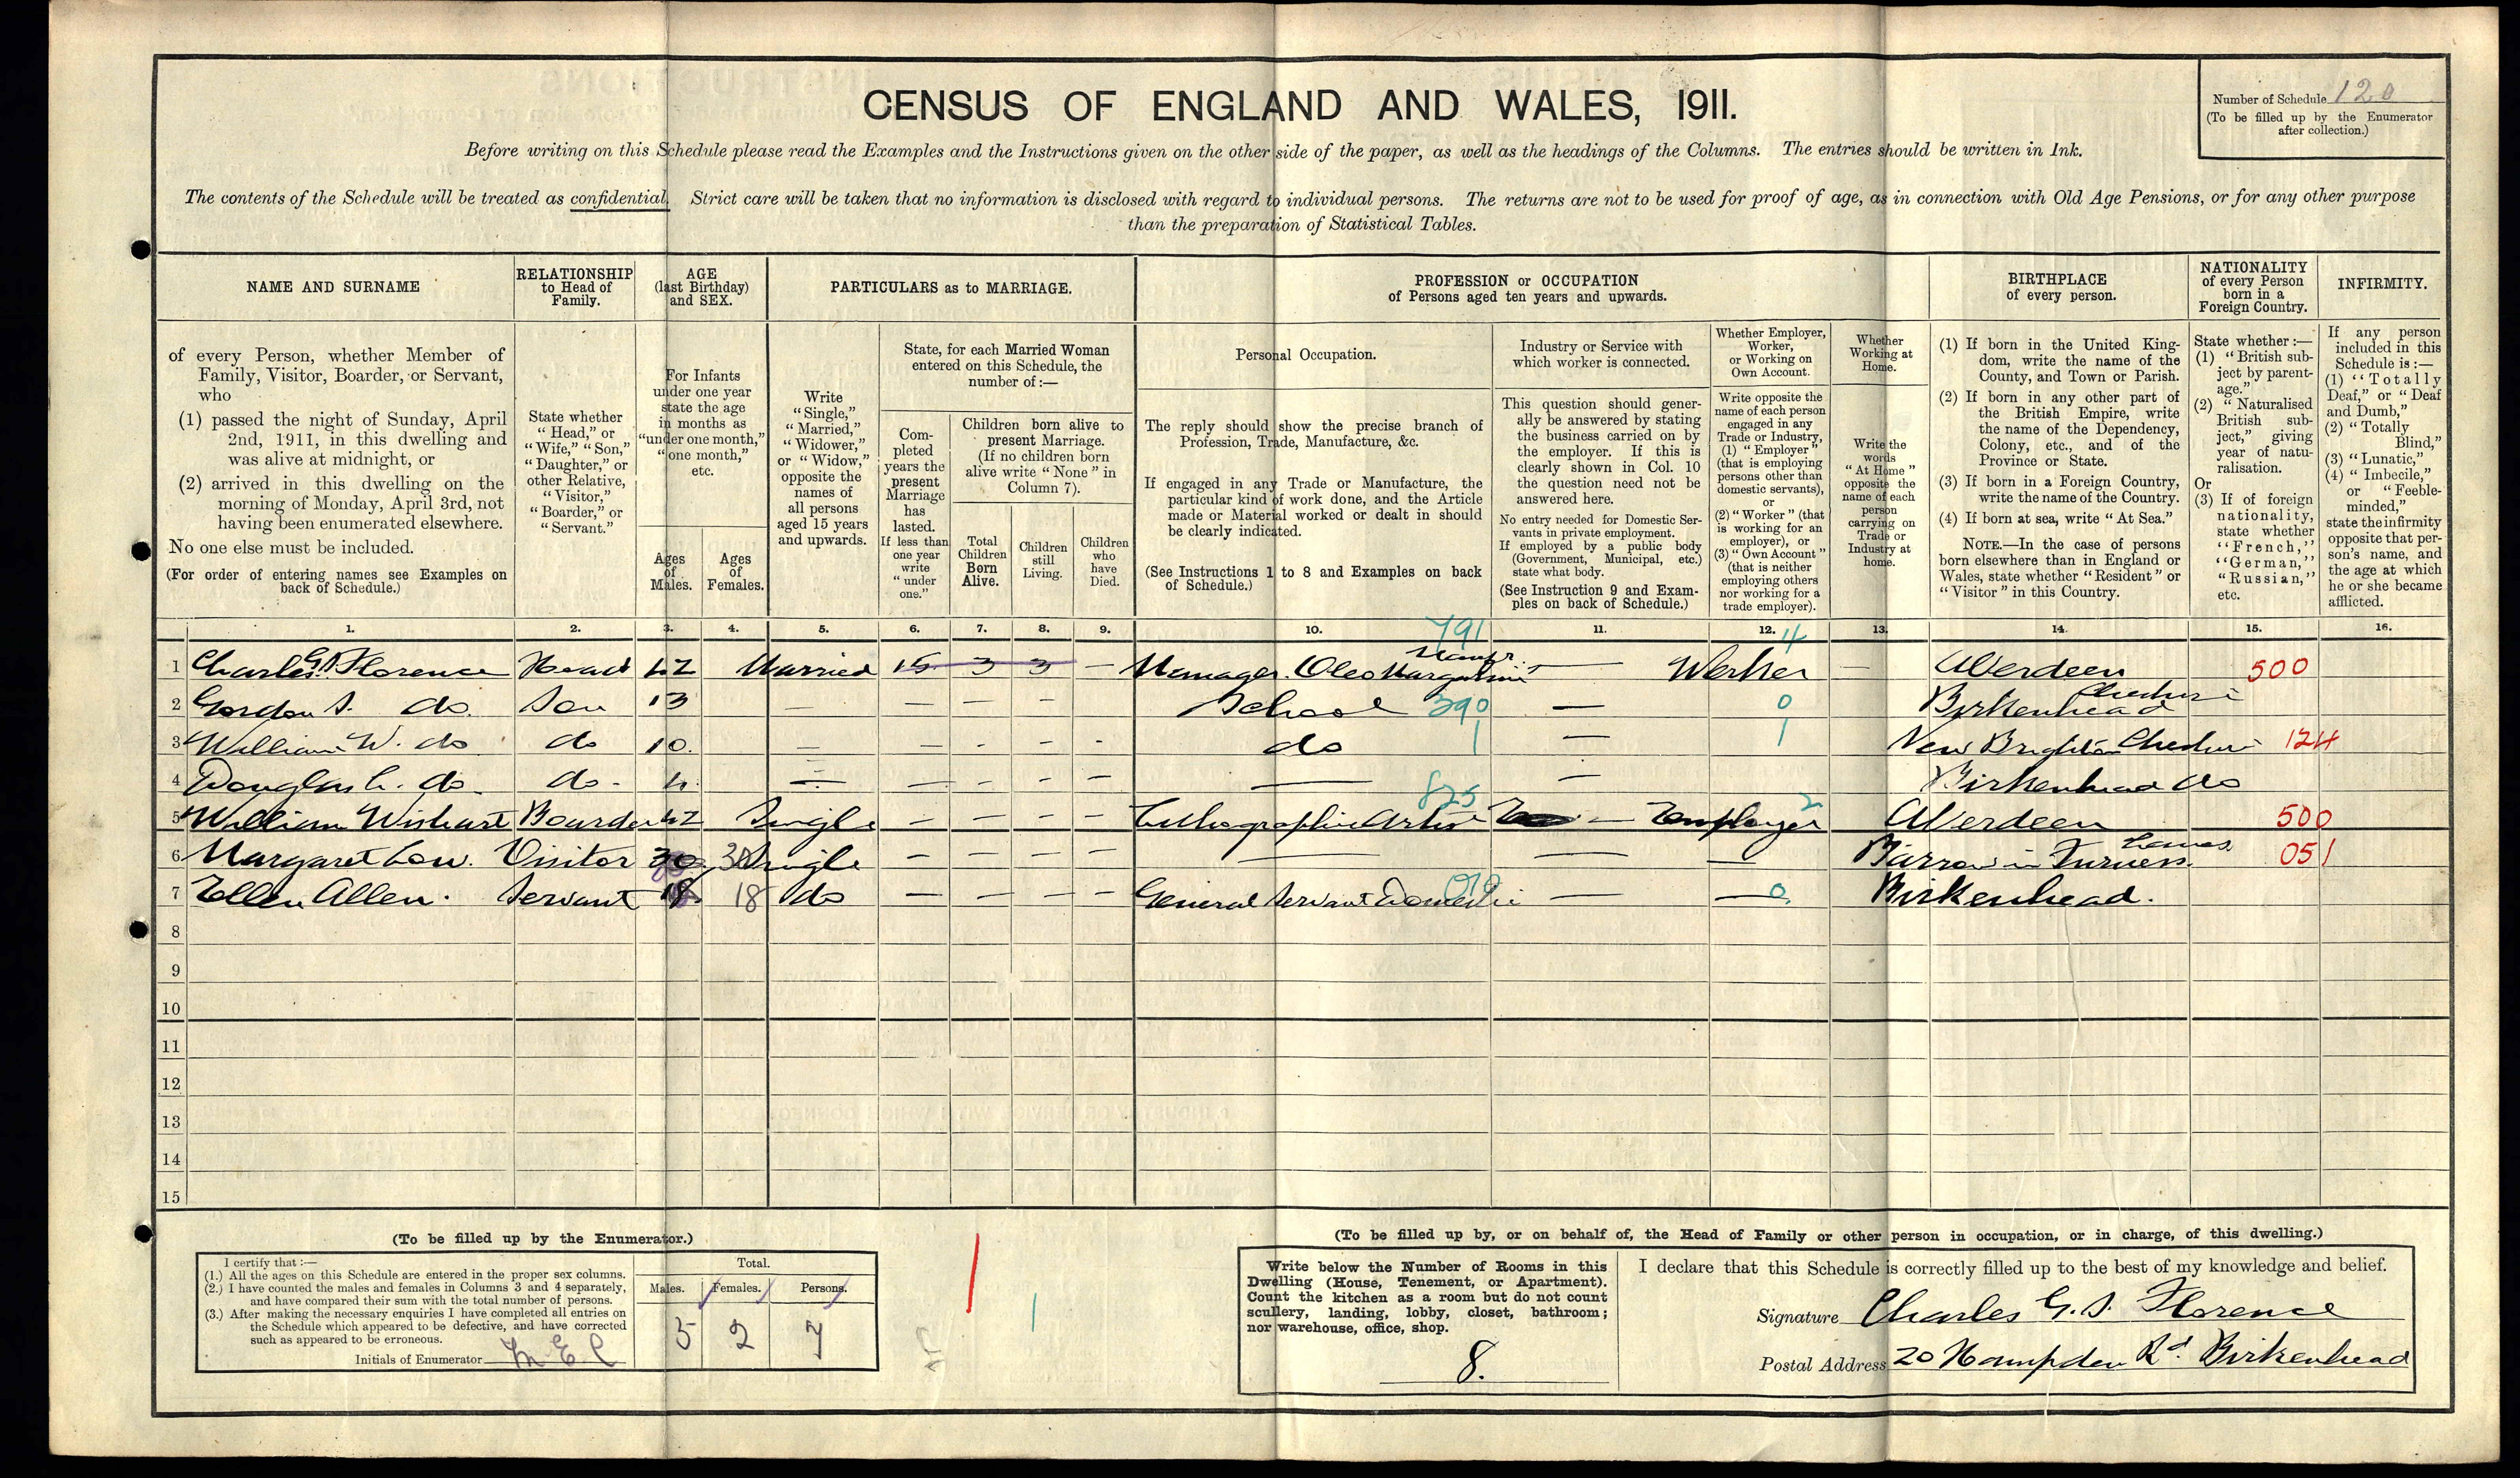 CENSUS OF ENGLAND AND WALES, 1911.
Number of Schedule 120
(To be filled up by the Enumerator
after collection.)
Before writing on this Schedule please read the Examples and the Instructions given on the other side of the paper, as well as the headings of the Columns. The entries should be written in Ink.
The contents of the Schedule will be treated as confidential. Strict care will be taken that no information is disclosed with regard to individual persons. The returns are not to be used for proof of age, as in connection with Old Age Pensions, or for any other purpose
than the preparation of Statistical Tables.
NAME AND SURNAME
of every Person, whether Member of
Family, Visitor, Boarder, or Servant,
who
(1) passed the night of Sunday, April
2nd, 1911, in this dwelling and
was alive at midnight, or
(2) arrived in this dwelling on the
morning of Monday, April 3rd, not
having been enumerated elsewhere.
No one else must be included.
(For order of entering names see Examples on
back of Schedule.)
RELATIONSHIP
to Head of
Family.
State whether
"Head," or
"Wife," "Son,"
"Daughter," or
other Relative,
"Visitor,"
"Boarder," or
"Servant."
AGE
(last Birthday)
and SEX.
For Infants
under one year
state the age
in months as
"under one month,"
"one month,"
etc.
Ages
of
Males.
Ages
of
Females.
PARTICULARS as to MARRIAGE.
Write
"Single,"
"Married,"
"Widower,"
or "Widow,"
opposite the
names of
all persons
aged 15 years
and upwards.
State, for each Married Woman
entered on this Schedule, the
number of:—
Com-
pleted
years the
present
Marriage
has
lasted.
If less than
one year
write
"under
one."
Children born alive to
present Marriage.
(If no children born
alive write "None" in
Column 7).
Total
Children
Born
Alive.
Children
still
Living.
Children
who
have
Died.
PROFESSION or OCCUPATION
of Persons aged ten years and upwards.
Personal Occupation.
The reply should show the precise branch of
Profession, Trade, Manufacture, &c.
If engaged in any Trade or Manufacture, the
particular kind of work done, and the Article
made or Material worked or dealt in should
be clearly indicated.
(See Instructions 1 to 8 and Examples on back
of Schedule.)
Industry or Service with
which worker is connected.
This question should gener-
ally be answered by stating
the business carried on by
the employer. If this is
clearly shown in Col. 10
the question need not be
answered here.
No entry needed for Domestic Ser-
vants in private employment.
If employed by a public body
(Government, Municipal, etc.)
state what body.
(See Instruction 9 and Exam-
ples on back of Schedule.)
Whether Employer,
Worker,
or Working on
Own Account.
Write opposite the
name of each person
engaged in any
Trade or Industry,
(1) "Employer"
(that is employing
persons other than
domestic servants),
or
(2) "Worker" (that
is working for an
employer), or
(3) "Own Account"
(that is neither
employing others
nor working for a
trade employer).
Whether
Working at
Home.
Write the
words
"At Home"
opposite the
name of each
person
carrying on
Trade or
Industry at
home.
BIRTHPLACE
of every person.
(1) If born in the United King-
dom, write the name of the
County, and Town or Parish.
(2) If born in any other part of
the British Empire, write
the name of the Dependency,
Colony, etc., and of the
Province or State.
(3) If born in a Foreign Country,
write the name of the Country.
(4) If born at sea, write "At Sea."
NOTE.—In the case of persons
born elsewhere than in England or
Wales, state whether "Resident" or
"Visitor" in this Country.
NATIONALITY
of every Person
born in a
Foreign Country.
State whether :—
(1) "British sub-
ject by parent-
age."
(2) "Naturalised
British sub-
ject," giving
year of natu-
ralisation.
Or
(3) If of foreign
nationality,
state whether
"French,"
"German,"
"Russian,"
etc.
INFIRMITY.
If any person
included in this
Schedule is :—
(1) "Totally
Deaf," or "Deaf
and Dumb,"
(2) "Totally
Blind,"
(3) "Lunatic,"
(4) "Imbecile,"
or "Feeble-
minded,"
state the infirmity
opposite that per-
son's name, and
the age at which
he or she became
afflicted.
1. 2. 3. 4. 5. 6. 7. 8. 9. 10. 11. 12. 13. 14. 15. 16.
791 4
1 Charles G.S. Florence Head 42 Married 15 3 3 — Manager Oleo Margarine Manfr. — Worker — Aberdeen 500
2 Gordon S. do. Son 13 — — — — School 390 — 0 Birkenhead Cheshire
3 William W. do do 10. — — - - - do 1 — 1 New Brighton Cheshire 124
4 Douglas C. do. do - 4. — — — — — — — Birkenhead do
5 William Wishart Boarder 42 Single — — — — Lithographic Artist 825 — Employer 2 Aberdeen 500
6 Margaret Low. Visitor 30 30 Single — — — — — — — Barrow in Furness. Lancs. 051
7 Ellen Allen. Servant 18 18 do — — — — General Servant Domestic 010 — — 0 Birkenhead.
8
9
10
11
12
13
14
15
(To be filled up by the Enumerator.)
I certify that :—
(1.) All the ages on this Schedule are entered in the proper sex columns.
(2.) I have counted the males and females in Columns 3 and 4 separately,
and have compared their sum with the total number of persons.
(3.) After making the necessary enquiries I have completed all entries on
the Schedule which appeared to be defective, and have corrected
such as appeared to be erroneous.
Initials of Enumerator
Total.
Males. Females. Persons.
5 2 7
(To be filled up by, or on behalf of, the Head of Family or other person in occupation, or in charge, of this dwelling.)
Write below the Number of Rooms in this
Dwelling (House, Tenement, or Apartment).
Count the kitchen as a room but do not count
scullery, landing, lobby, closet, bathroom;
nor warehouse, office, shop.
8.
I declare that this Schedule is correctly filled up to the best of my knowledge and belief.
Signature Charles G. S. Florence
Postal Address 20 Hampden Rd. Birkenhead